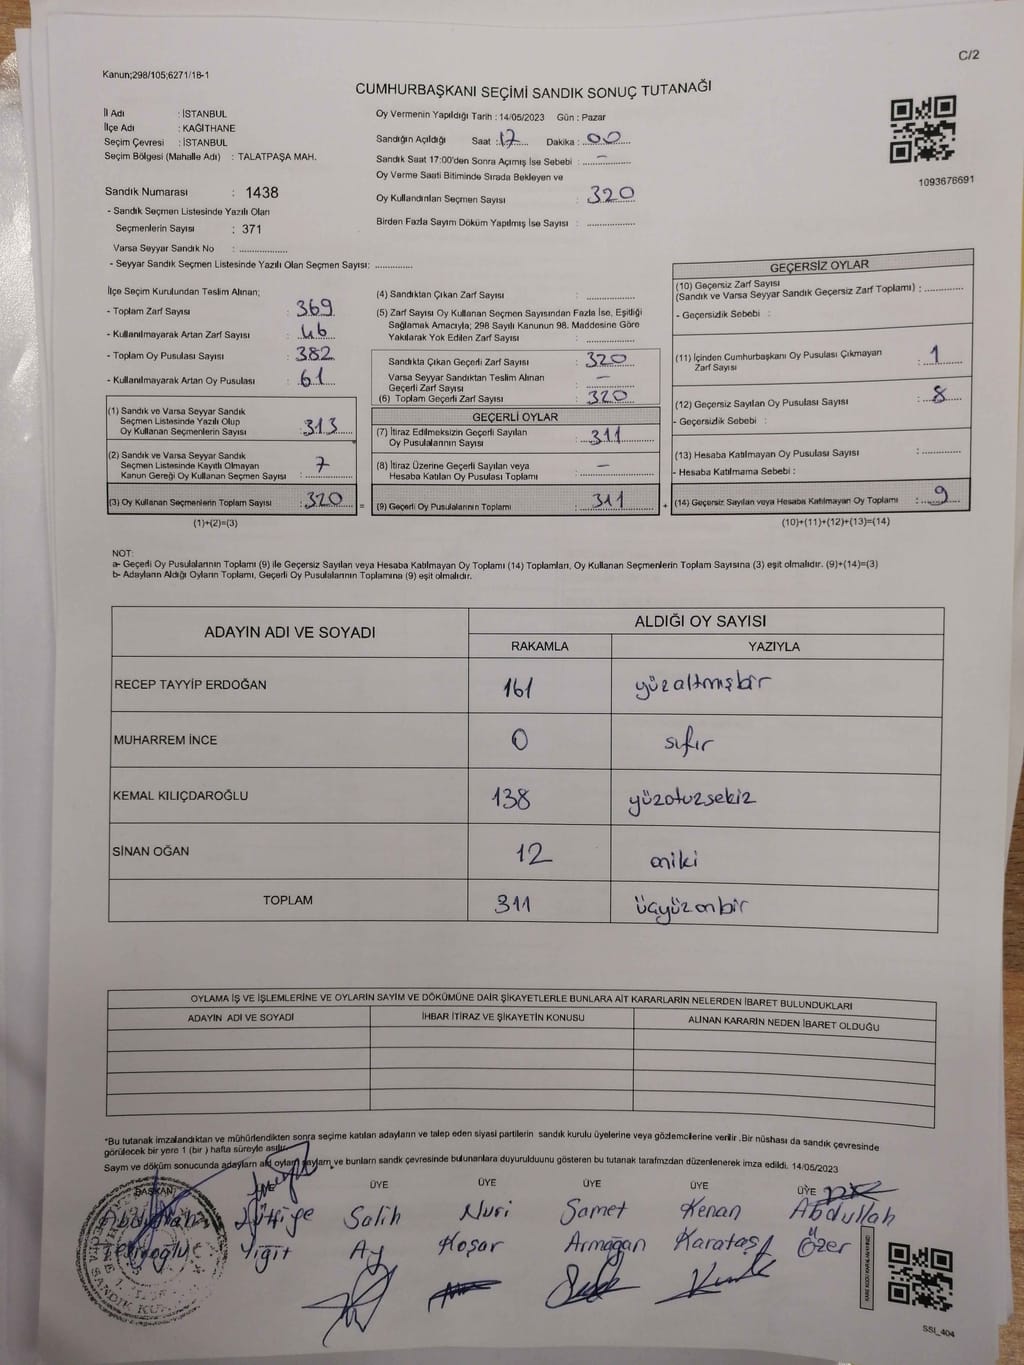 C/2
Kanun;298/105;6271/18-1
CUMHURBAŞKANI SEÇİMİ SANDIK SONUÇ TUTANAĞI
İl Adı : İSTANBUL
İlçe Adı : KAĞITHANE
Seçim Çevresi : İSTANBUL
Seçim Bölgesi (Mahalle Adı) : TALATPAŞA MAH.
Sandık Numarası : 1438
- Sandık Seçmen Listesinde Yazılı Olan
Seçmenlerin Sayısı : 371
Varsa Seyyar Sandık No : ................
- Seyyar Sandık Seçmen Listesinde Yazılı Olan Seçmen Sayısı: ............
Oy Vermenin Yapıldığı Tarih : 14/05/2023 Gün : Pazar
Sandığın Açıldığı Saat : 17 Dakika : 00
Sandık Saat 17:00'den Sonra Açımış İse Sebebi : –
Oy Verme Saati Bitiminde Sırada Bekleyen ve
Oy Kullandırılan Seçmen Sayısı : 320
Birden Fazla Sayım Döküm Yapılmış İse Sayısı : ................
1093676691
İlçe Seçim Kurulundan Teslim Alınan;
- Toplam Zarf Sayısı : 369
- Kullanılmayarak Artan Zarf Sayısı : 46
- Toplam Oy Pusulası Sayısı : 382
- Kullanılmayarak Artan Oy Pusulası : 61
(1) Sandık ve Varsa Seyyar Sandık
Seçmen Listesinde Yazılı Olup
Oy Kullanan Seçmenlerin Sayısı : 313
(2) Sandık ve Varsa Seyyar Sandık
Seçmen Listesinde Kayıtlı Olmayan
Kanun Gereği Oy Kullanan Seçmen Sayısı : 7
(3) Oy Kullanan Seçmenlerin Toplam Sayısı : 320
(1)+(2)=(3)
(4) Sandıktan Çıkan Zarf Sayısı : ................
(5) Zarf Sayısı Oy Kullanan Seçmen Sayısından Fazla İse, Eşitliği
Sağlamak Amacıyla; 298 Sayılı Kanunun 98. Maddesine Göre
Yakılarak Yok Edilen Zarf Sayısı : ................
Sandıkta Çıkan Geçerli Zarf Sayısı : 320
Varsa Seyyar Sandıktan Teslim Alınan
Geçerli Zarf Sayısı : –
(6) Toplam Geçerli Zarf Sayısı : 320
GEÇERLİ OYLAR
(7) İtiraz Edilmeksizin Geçerli Sayılan
Oy Pusulalarının Sayısı : 311
(8) İtiraz Üzerine Geçerli Sayılan veya
Hesaba Katılan Oy Pusulası Toplamı : –
= (9) Geçerli Oy Pusulalarının Toplamı : 311
GEÇERSİZ OYLAR
(10) Geçersiz Zarf Sayısı
(Sandık ve Varsa Seyyar Sandık Geçersiz Zarf Toplamı) : ............
- Geçersizlik Sebebi :
(11) İçinden Cumhurbaşkanı Oy Pusulası Çıkmayan
Zarf Sayısı : 1
(12) Geçersiz Sayılan Oy Pusulası Sayısı : 8
- Geçersizlik Sebebi :
(13) Hesaba Katılmayan Oy Pusulası Sayısı : ............
- Hesaba Katılmama Sebebi :
+ (14) Geçersiz Sayılan veya Hesaba Katılmayan Oy Toplamı : 9
(10)+(11)+(12)+(13)=(14)
NOT:
a- Geçerli Oy Pusulalarının Toplamı (9) ile Geçersiz Sayılan veya Hesaba Katılmayan Oy Toplamı (14) Toplamları, Oy Kullanan Seçmenlerin Toplam Sayısına (3) eşit olmalıdır. (9)+(14)=(3)
b- Adayların Aldığı Oyların Toplamı, Geçerli Oy Pusulalarının Toplamına (9) eşit olmalıdır.
ADAYIN ADI VE SOYADI ALDIĞI OY SAYISI
RAKAMLA YAZIYLA
RECEP TAYYİP ERDOĞAN 161 yüzaltmışbir
MUHARREM İNCE 0 sıfır
KEMAL KILIÇDAROĞLU 138 yüzotuzsekiz
SİNAN OĞAN 12 oniki
TOPLAM 311 üçyüzonbir
OYLAMA İŞ VE İŞLEMLERİNE VE OYLARIN SAYIM VE DÖKÜMÜNE DAİR ŞİKAYETLERLE BUNLARA AİT KARARLARIN NELERDEN İBARET BULUNDUKLARI
ADAYIN ADI VE SOYADI İHBAR İTİRAZ VE ŞİKAYETİN KONUSU ALINAN KARARIN NEDEN İBARET OLDUĞU
*Bu tutanak imzalandıktan ve mühürlendikten sonra seçime katılan adayların ve talep eden siyasi partilerin sandık kurulu üyelerine veya gözlemcilerine verilir .Bir nüshası da sandık çevresinde
görülecek bir yere 1 (bir ) hafta süreyle asılır.
Sayım ve döküm sonucunda adayların ad oyların ve bunların sandık çevresinde bulunanlara duyurulduunu gösteren bu tutanak tarafımızdan düzenlenerek imza edildi. 14/05/2023
BAŞKAN ÜYE ÜYE ÜYE ÜYE ÜYE
Abdullah Lütfiye Salih Nuri Samet Kenan Abdullah
Yiğit Ay Koşar Armağan Karataş Özer
SSI_404